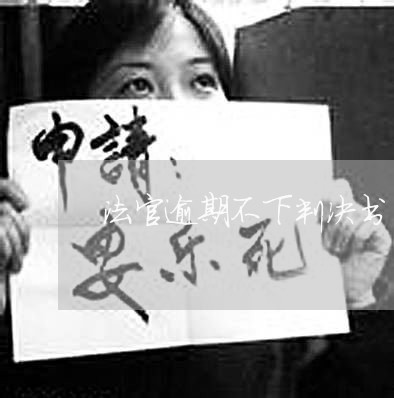 申請：
法官逾期不下判决书
安乐死